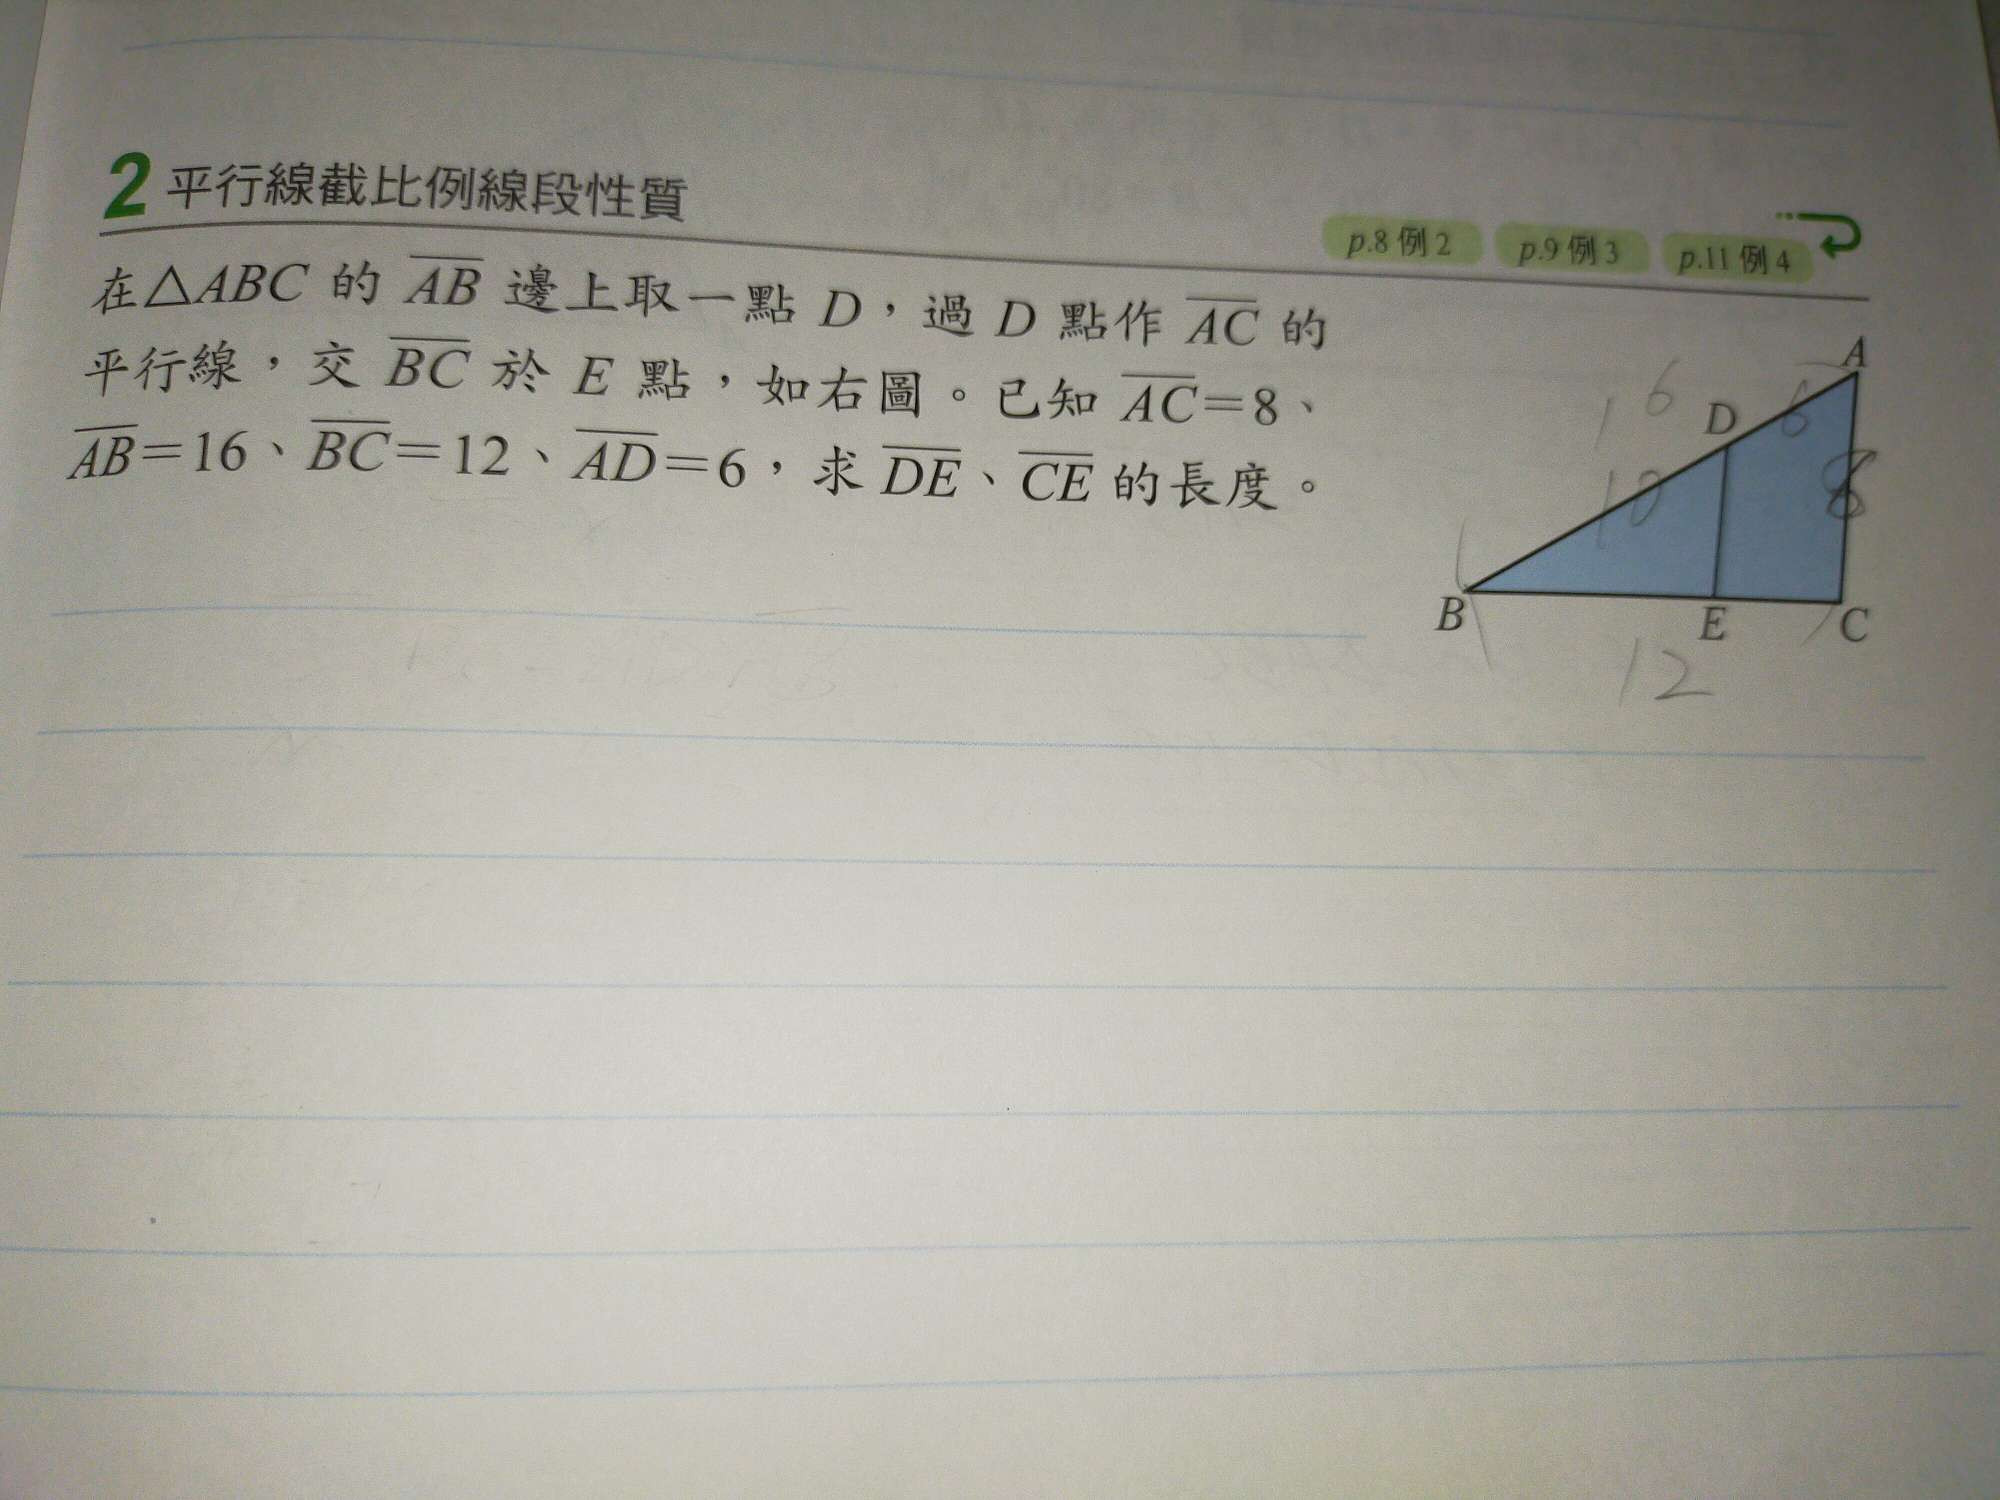 2 平行線截比例線段性質
p.8 例 2 p.9 例 3 p.11 例 4
在△ABC 的 AB 邊上取一點 D，過 D 點作 AC 的
平行線，交 BC 於 E 點，如右圖。已知 AC=8、
AB=16、BC=12、AD=6，求 DE、CE 的長度。
A
16
D
6
10
8
B
E
C
12